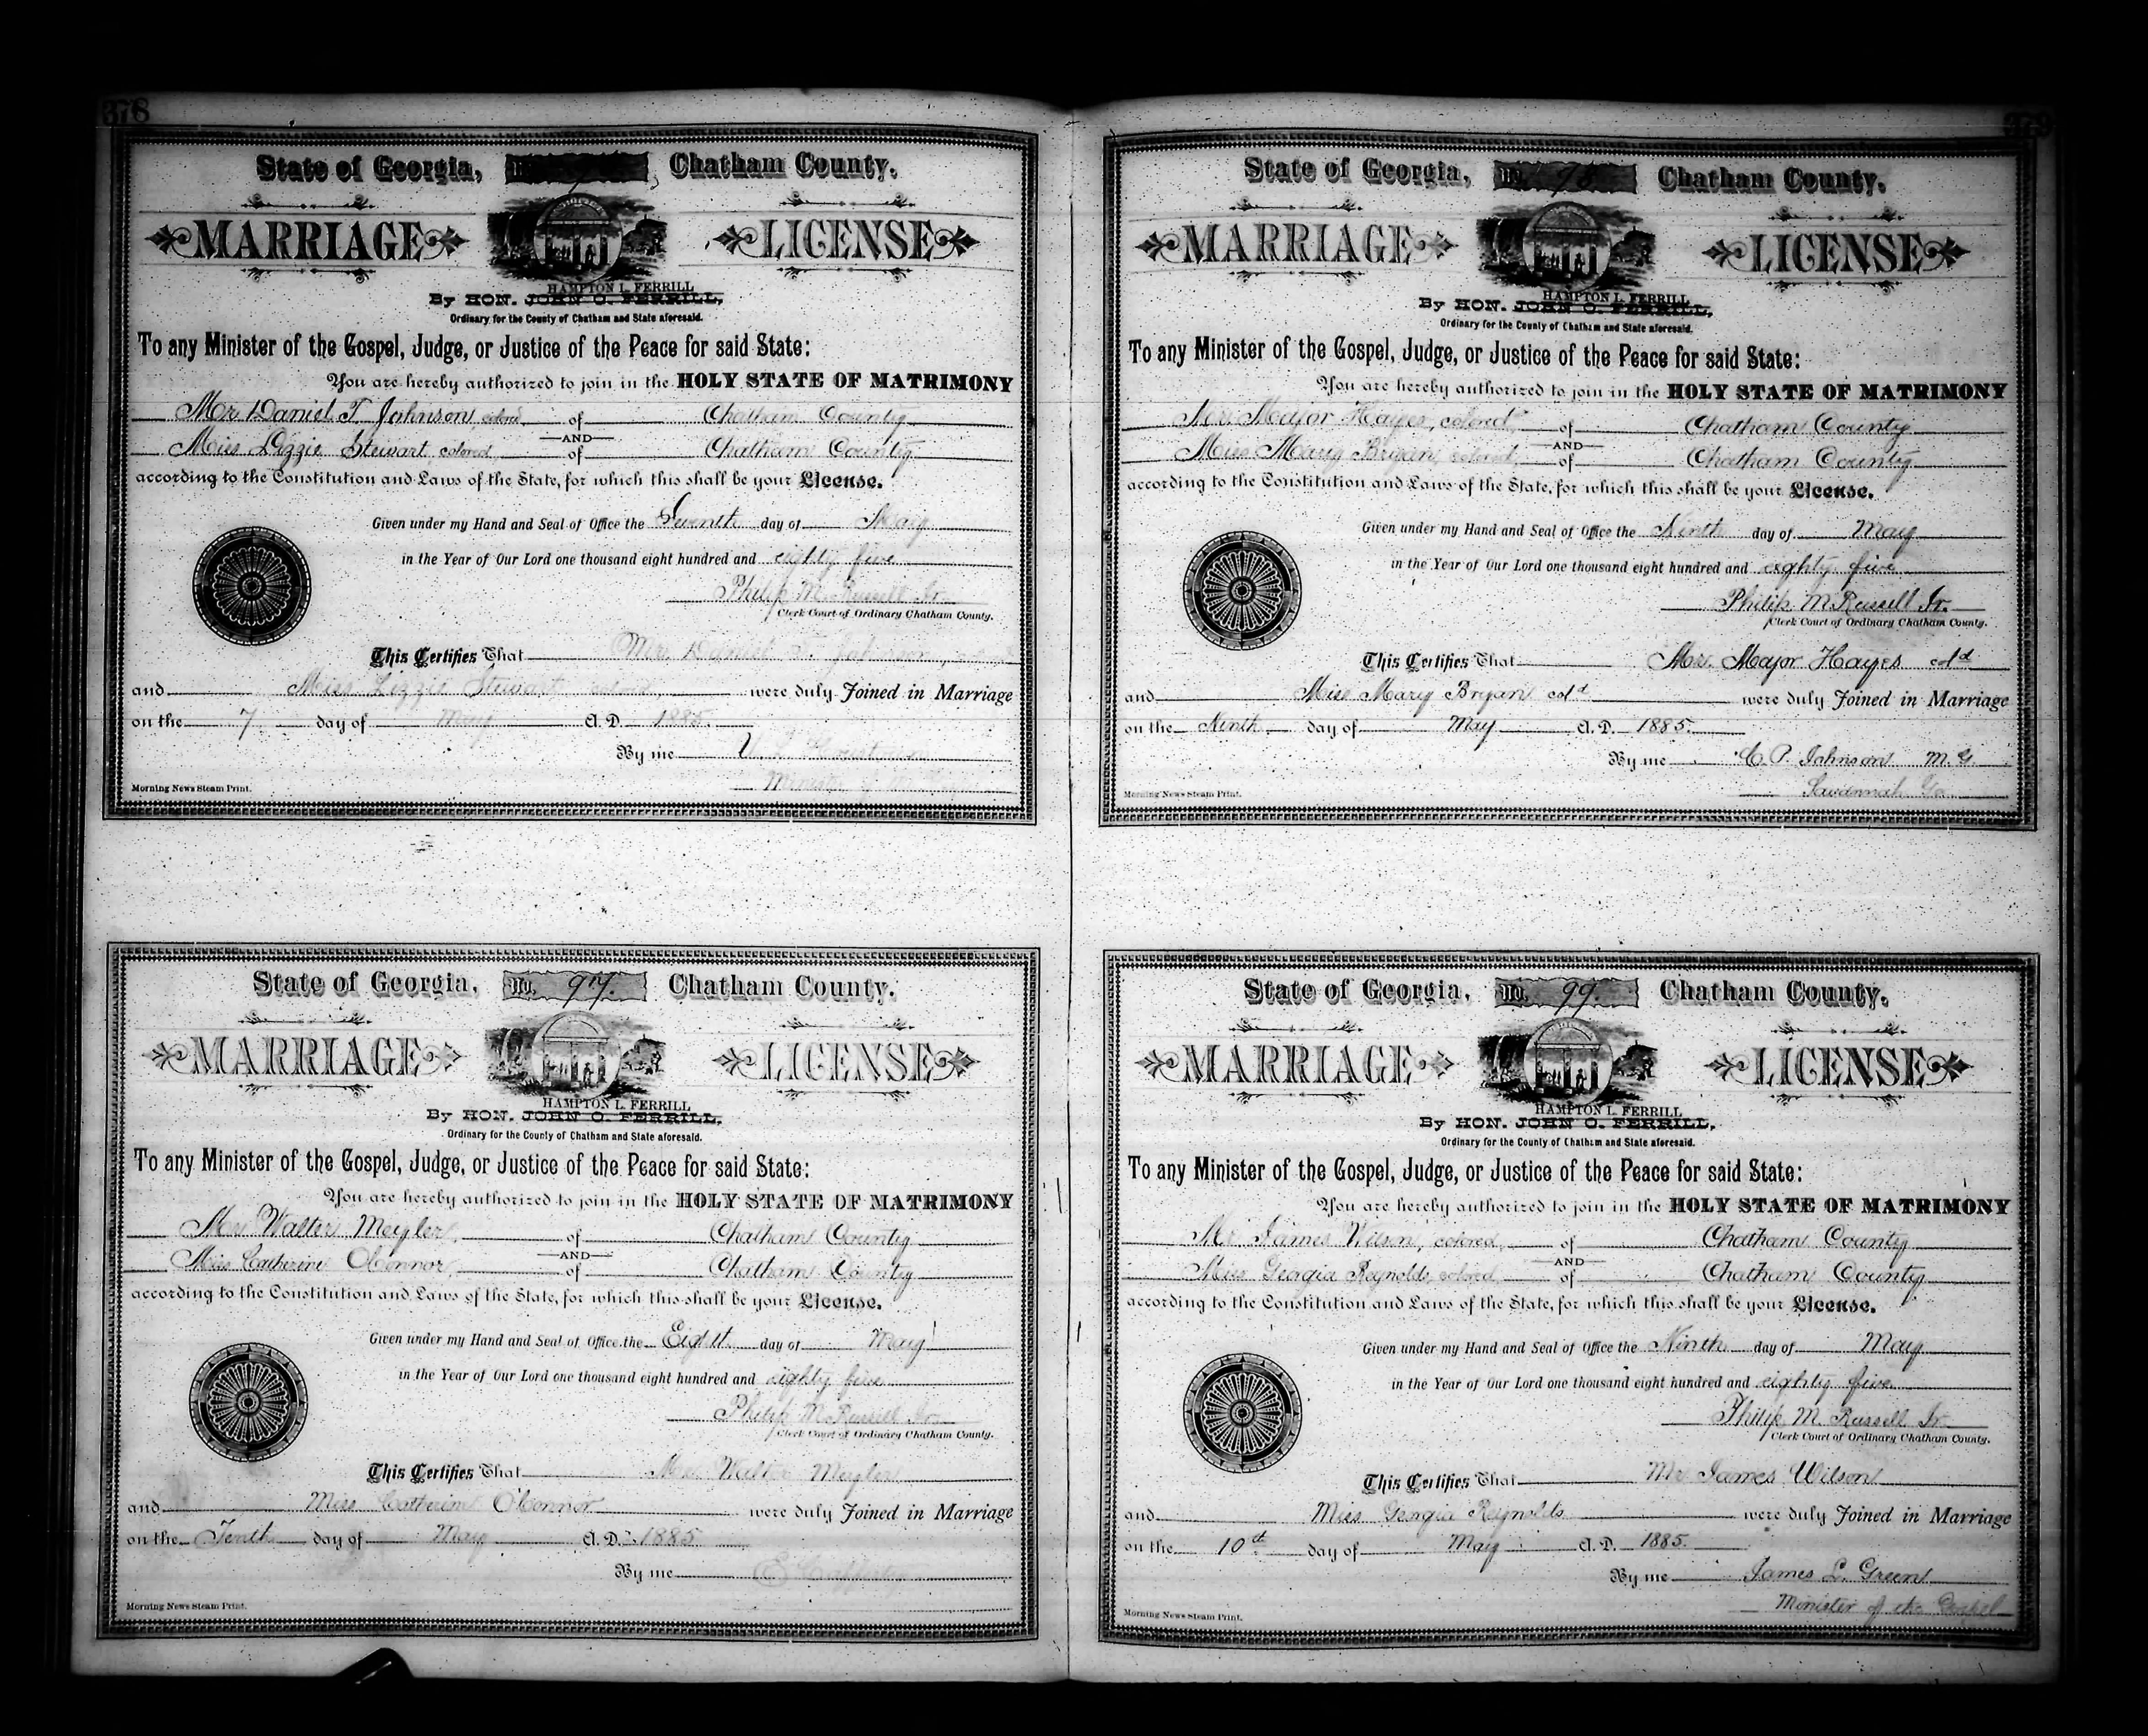 378
State of Georgia, Chatham County.
MARRIAGE LICENSE
HAMPTON L. FERRILL
By HON. JOHN O. FERRILL,
Ordinary for the County of Chatham and State aforesaid.
To any Minister of the Gospel, Judge, or Justice of the Peace for said State:
You are hereby authorized to join in the HOLY STATE OF MATRIMONY
Mr. Daniel T. Johnson, colored, of Chatham County
AND
Miss Lizzie Stewart colored of Chatham County
according to the Constitution and Laws of the State, for which this shall be your License.
Given under my Hand and Seal of Office the Seventh day of May
in the Year of Our Lord one thousand eight hundred and eighty five
Philip M. Russell Jr.
Clerk Court of Ordinary Chatham County.
This Certifies That Mr. Daniel T. Johnson,
and Miss Lizzie Stewart colored, were duly Joined in Marriage
on the 7 day of May A. D. 1885.
By me U. L. Houston
Minister
Morning News Steam Print.
State of Georgia, No. 97. Chatham County.
MARRIAGE LICENSE
HAMPTON L. FERRILL
By HON. JOHN O. FERRILL,
Ordinary for the County of Chatham and State aforesaid.
To any Minister of the Gospel, Judge, or Justice of the Peace for said State:
You are hereby authorized to join in the HOLY STATE OF MATRIMONY
Mr Walter Meyler, of Chatham County
AND
Miss Catherine O'Connor, of Chatham County
according to the Constitution and Laws of the State, for which this shall be your License.
Given under my Hand and Seal of Office the Eight day of May
in the Year of Our Lord one thousand eight hundred and eighty five
Philip M. Russell Jr.
Clerk Court of Ordinary Chatham County.
This Certifies That Mr. Walter Meyler
and Miss Catherine O'Connor were duly Joined in Marriage
on the Tenth day of May A. D. 1885
By me E Cafferty
Morning News Steam Print.
379
State of Georgia, No. 98 Chatham County.
MARRIAGE LICENSE
HAMPTON L. FERRILL
By HON. JOHN O. FERRILL,
Ordinary for the County of Chatham and State aforesaid.
To any Minister of the Gospel, Judge, or Justice of the Peace for said State:
You are hereby authorized to join in the HOLY STATE OF MATRIMONY
Mr. Major Hayes, colored, of Chatham County
AND
Miss Mary Bryan, colored, of Chatham County
according to the Constitution and Laws of the State, for which this shall be your License.
Given under my Hand and Seal of Office the Ninth day of May
in the Year of Our Lord one thousand eight hundred and eighty five
Philip M. Russell Jr.
Clerk Court of Ordinary Chatham County.
This Certifies That Mr. Major Hayes cold
and Miss Mary Bryan cold were duly Joined in Marriage
on the Ninth day of May A. D. 1885.
By me C. P. Johnson M. G.
Savannah Ga.
Morning News Steam Print.
State of Georgia, No. 99. Chatham County.
MARRIAGE LICENSE
HAMPTON L. FERRILL
By HON. JOHN O. FERRILL,
Ordinary for the County of Chatham and State aforesaid.
To any Minister of the Gospel, Judge, or Justice of the Peace for said State:
You are hereby authorized to join in the HOLY STATE OF MATRIMONY
Mr. James Wilson, colored, of Chatham County
AND
Miss Georgia Reynolds, colored of Chatham County
according to the Constitution and Laws of the State, for which this shall be your License.
Given under my Hand and Seal of Office the Ninth day of May
in the Year of Our Lord one thousand eight hundred and eighty five
Philip M. Russell Jr.
Clerk Court of Ordinary Chatham County.
This Certifies That Mr James Wilson
and Miss Georgia Reynolds were duly Joined in Marriage
on the 10th day of May A. D. 1885.
By me James L. Green
Minister of the Gospel
Morning News Steam Print.